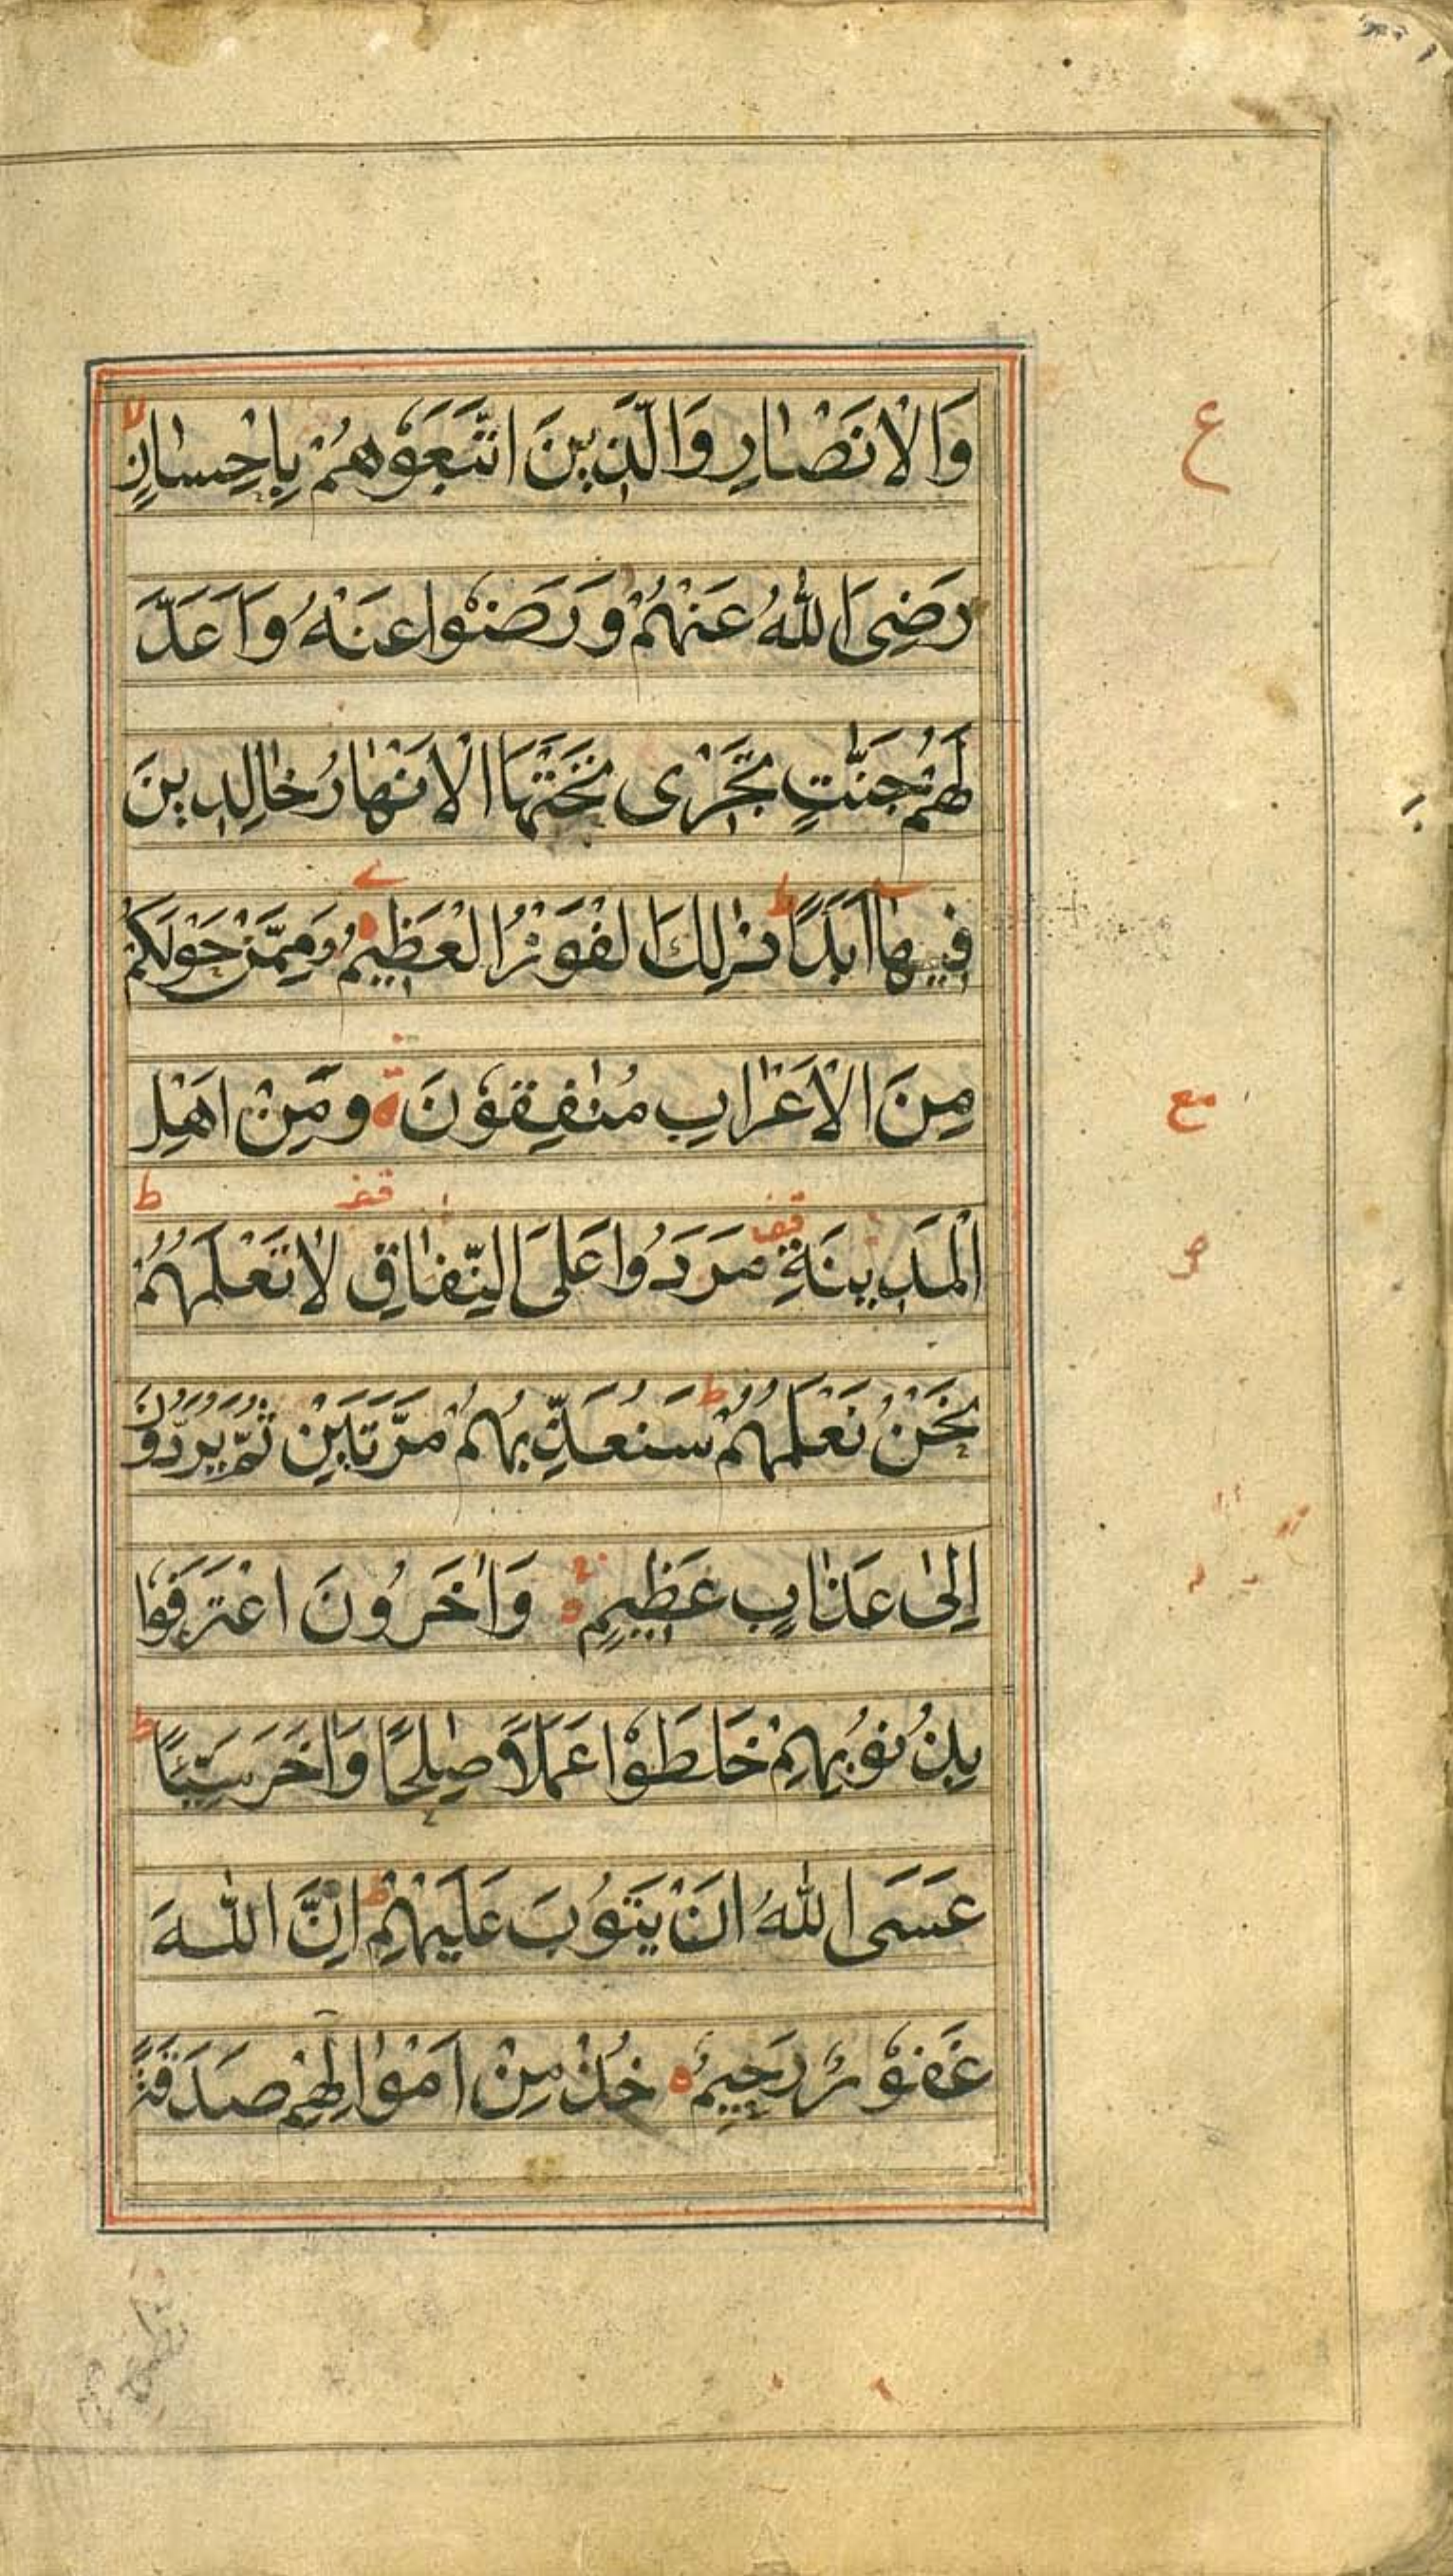 وَالْاَنْصَارِ وَالَّذِينَ اتَّبَعَوْهُمْ بِاِحْسَانٍ لا
ع
رَضِىَ اللّٰهُ عَنْهُمْ وَرَضُوْا عَنْهُ وَاَعَدَّ
لَهُمْ جَنّٰتٍ تَجْرِى تَحْتَهَا الْاَنْهَارُ خَالِدِينَ
فِيهَا اَبَدًا ط ذٰلِكَ الْفَوْزُ الْعَظِيمُ وَمِمَّنْ حَوْلَكُمْ
مِنَ الْاَعْرَابِ مُنٰفِقُوْنَ وَمِنْ اَهْلِ
مع
الْمَدِينَةِ قف مَرَدُوا عَلَى النِّفَاقِ قف لَا تَعْلَمُهُمْ ط
نَحْنُ نَعْلَمُهُمْ ط سَنُعَذِّبُهُمْ مَرَّتَيْنِ ثُمَّ يُرَدُّوْنَ
اِلٰى عَذَابٍ عَظِيمٍ وَاٰخَرُونَ اعْتَرَفُوْا
بِذُنُوْبِهِمْ خَلَطُوْا عَمَلًا صٰلِحًا وَاٰخَرَ سَيِّئًا ط
عَسَى اللّٰهُ اَنْ يَتُوْبَ عَلَيْهِمْ ط اِنَّ اللّٰهَ
غَفُوْرٌ رَحِيمٌ خُذْ مِنْ اَمْوَالِهِمْ صَدَقَةً